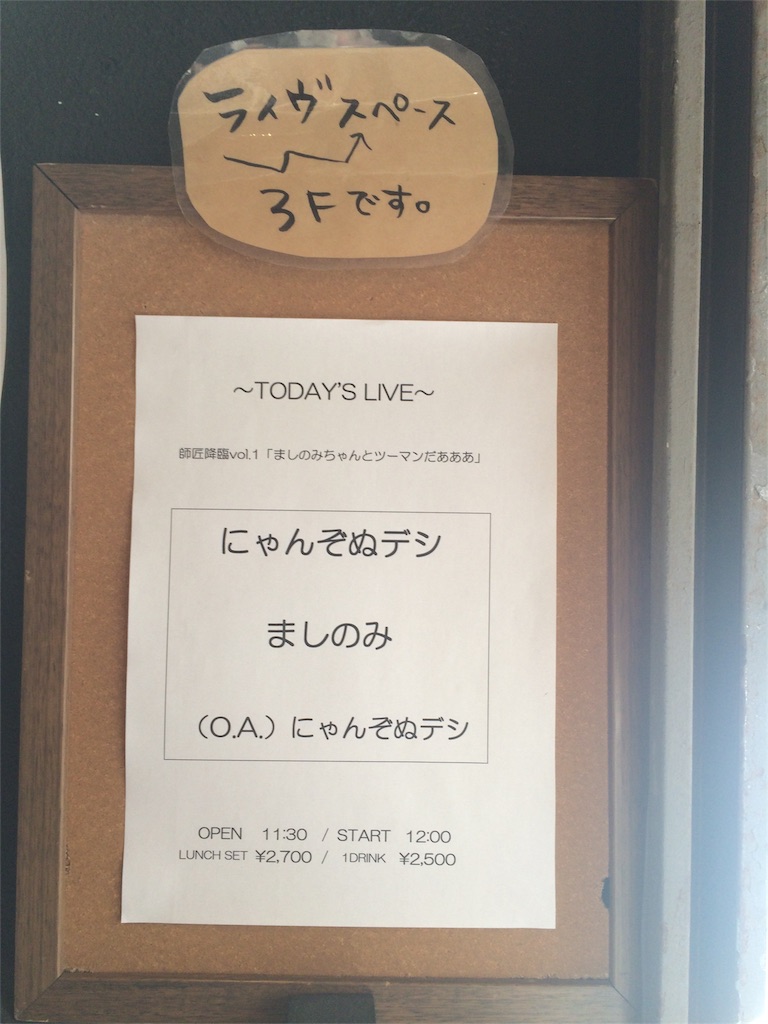 ライヴスペース
3Fです。
～TODAY'S LIVE～
師匠降臨vol.1「ましのみちゃんとツーマンだあああ」
にゃんぞぬデシ
ましのみ
（O.A.）にゃんぞぬデシ
OPEN 11:30 / START 12:00
LUNCH SET ¥2,700 / 1DRINK ¥2,500